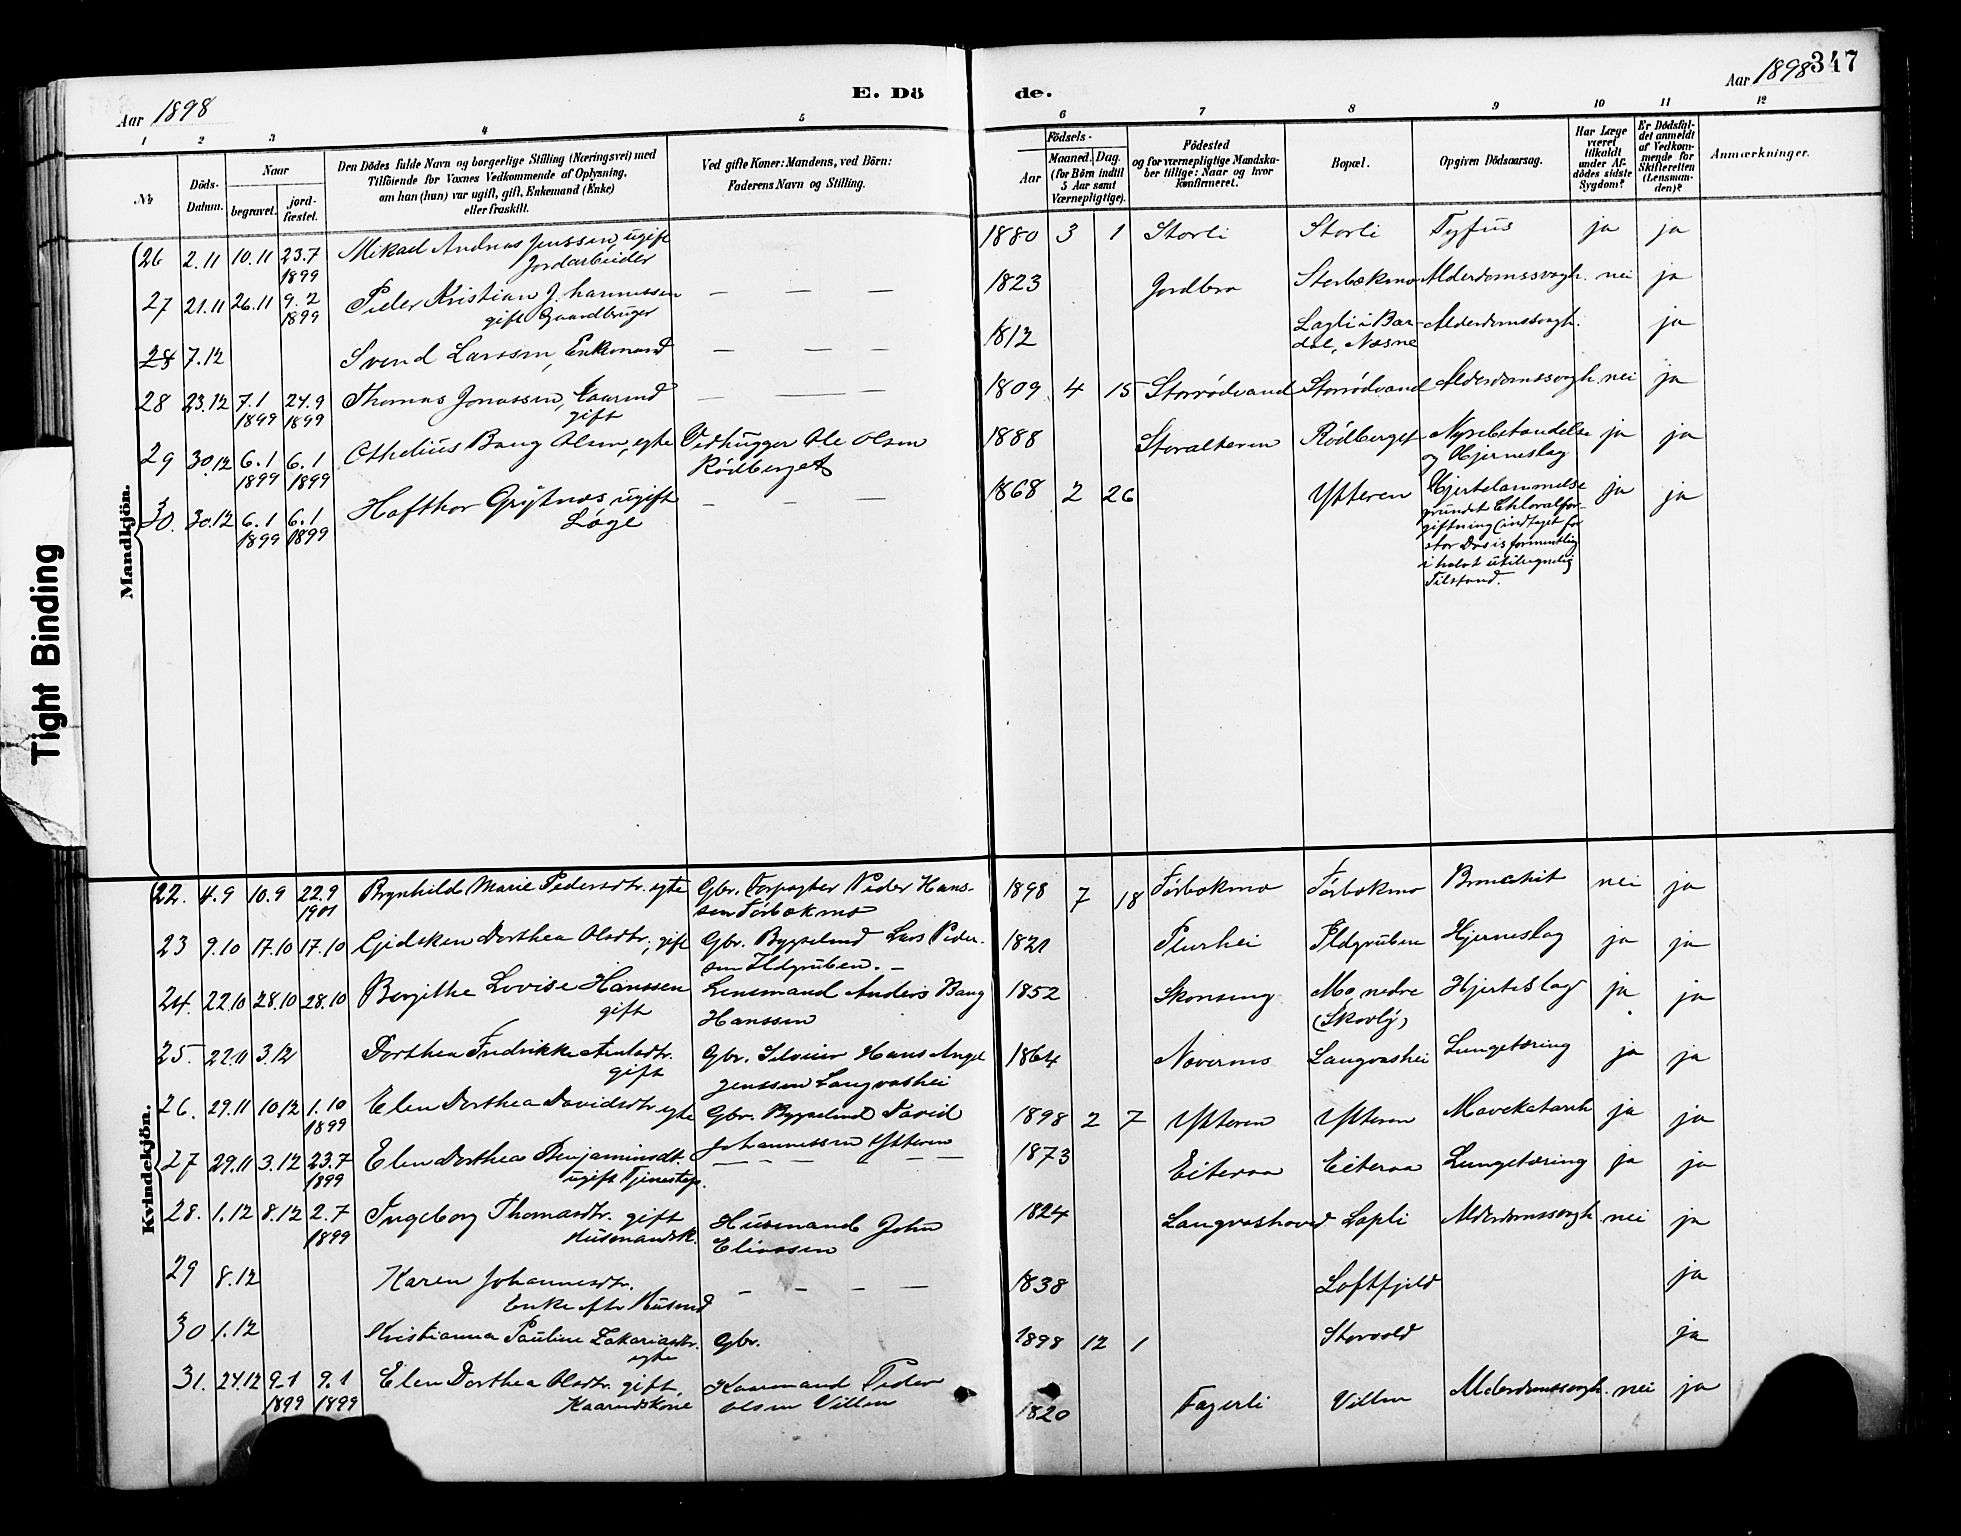 Tight Binding
Aar 1898
E. Dö
de.
Aar 1898
347
1 2 3 4 5 6 7 8 9 10 11 12
No
Döds-
Datum.
Naar
begravet.
jord-
fæstet.
Den Dödes fulde Navn og borgerlige Stilling (Næringsvei) med
Tilföiende for Voxnes Vedkommende af Oplysning,
om han (hun) var ugift, gift, Enkemand (Enke)
eller fraskilt.
Ved gifte Koner: Mandens, ved Börn:
Faderens Navn og Stilling.
Födsels-
Aar
Maaned. Dag.
(for Börn indtil
5 Aar samt
Værnepligtige).
Födested
og for værnepligtige Mandska-
ber tillige: Naar og hvor
konfirmeret.
Bopæl.
Opgiven Dödsaarsag.
Har Læge
været
tilkaldt
under Af-
dödes sidste
Sygdom?
Er Dödsfal-
det anmeldt
af Vedkom-
mende for
Skifteretten
(Lensman-
den)?
Anmærkninger.
Mandkjön.
26 2.11 10.11 23.7 Mikael Andreas Jenssen, ugift 1880 3 1 Storli Storli Tyfus ja ja
1899 Jordarbeider
27 21.11 26.11 9.2 Peder Kristian Johannessen — — — 1823 Jordbro Storbækmo Alderdomssvagh. nei ja
1899 gift Gaardbruger
28 7.12 Svend Larssen, Enkemand — — — 1812 Lagli i Bar- Alderdomssvagh. ja
dal, Næsne
28 23.12 7.1 24.9 Thomas Jonassen, Kaarmd — — — 1809 4 15 Storrødvand Storrødvand Alderdomssvagh. nei ja
1899 1899 gift
29 30.12 6.1 6.1 Othelius Bang Olsen, egte Vedhugger Ole Olsen 1888 Storalteren Rødberget Nyrebetændelse ja ja
1899 1899 Rødberget og Hjerneslag
30. 30.12 6.1 6.1 Hafthor Grytnæs, ugift — — — 1868 2 26 Ytteren Hjertelammelse ja ja
1899 1899 Læge grundet Chloralfor-
giftning (indtaget for
stor Dosis formentlig
i halvt utilregnelig
Tilstand.
Kvindekjön.
22. 4.9 10.9 22.9 Brynhilde Marie Pedersdtr. egte Gbr. Forpagter Peder Hans- 1898 7 18 Tørbækmo Tørbækmo Bronchit nei ja
1901 sen Tørbækmo
23 9.10 17.10 17.10 Gjidsken Dorthea Olsdtr., gift Gbr. Bygselmd Lars Peder- 1821 Plurhei Ildgruben Hjerneslag ja ja
sen Ildgruben. —
24. 22.10 28.10 28.10 Bergithe Lovise Hanssen Lensmand Anders Bang 1852 Skonseng Mo nedre Hjerteslag ja ja
gift Hanssen (Skovly)
25. 22.11 3.12 Dorthea Fredrikke Arntsdtr. Gbr. Selveier Hans Angel 1864 Nævermo Langvashei Lungetæring ja ja
gift Jenssen Langvashei
26. 29.11 10.12 1.10 Elen Dorthea Davidsdtr. egte Gbr. Bygselmd David 1898 2 7 Ytteren Ytteren Mavekatarrh ja ja
1899 Johannessen Ytteren
27 29.11 3.12 23.7 Elen Dorthea Benjaminsdt. — — — — — 1873 Eiteraa Eiteraa Lungetæring ja ja
1899 ugift Tjenestep.
28. 1.12 8.12 2.7 Ingeborg Thomasdtr. gift Husmand John 1824 Langvashoved Lapli Alderdomssvagh. nei ja
1899 Husmandsk. Eliassen
29 8.12 Karen Johannesdtr. — — — — 1838 Loftfjeld ja
Enke efter Husmd
30 1.12 Kristianna Pauline Zakariasdtr. Gbr. 1898 12 1 Storvold ja
egte
31. 24.12 9.1 9.1 Elen Dorthea Olsdtr. gift, Kaarmand Peder 1820 Fagerli Villen Alderdomssvagh. nei ja
1899 1899 Kaarmdskone Olsen Villen